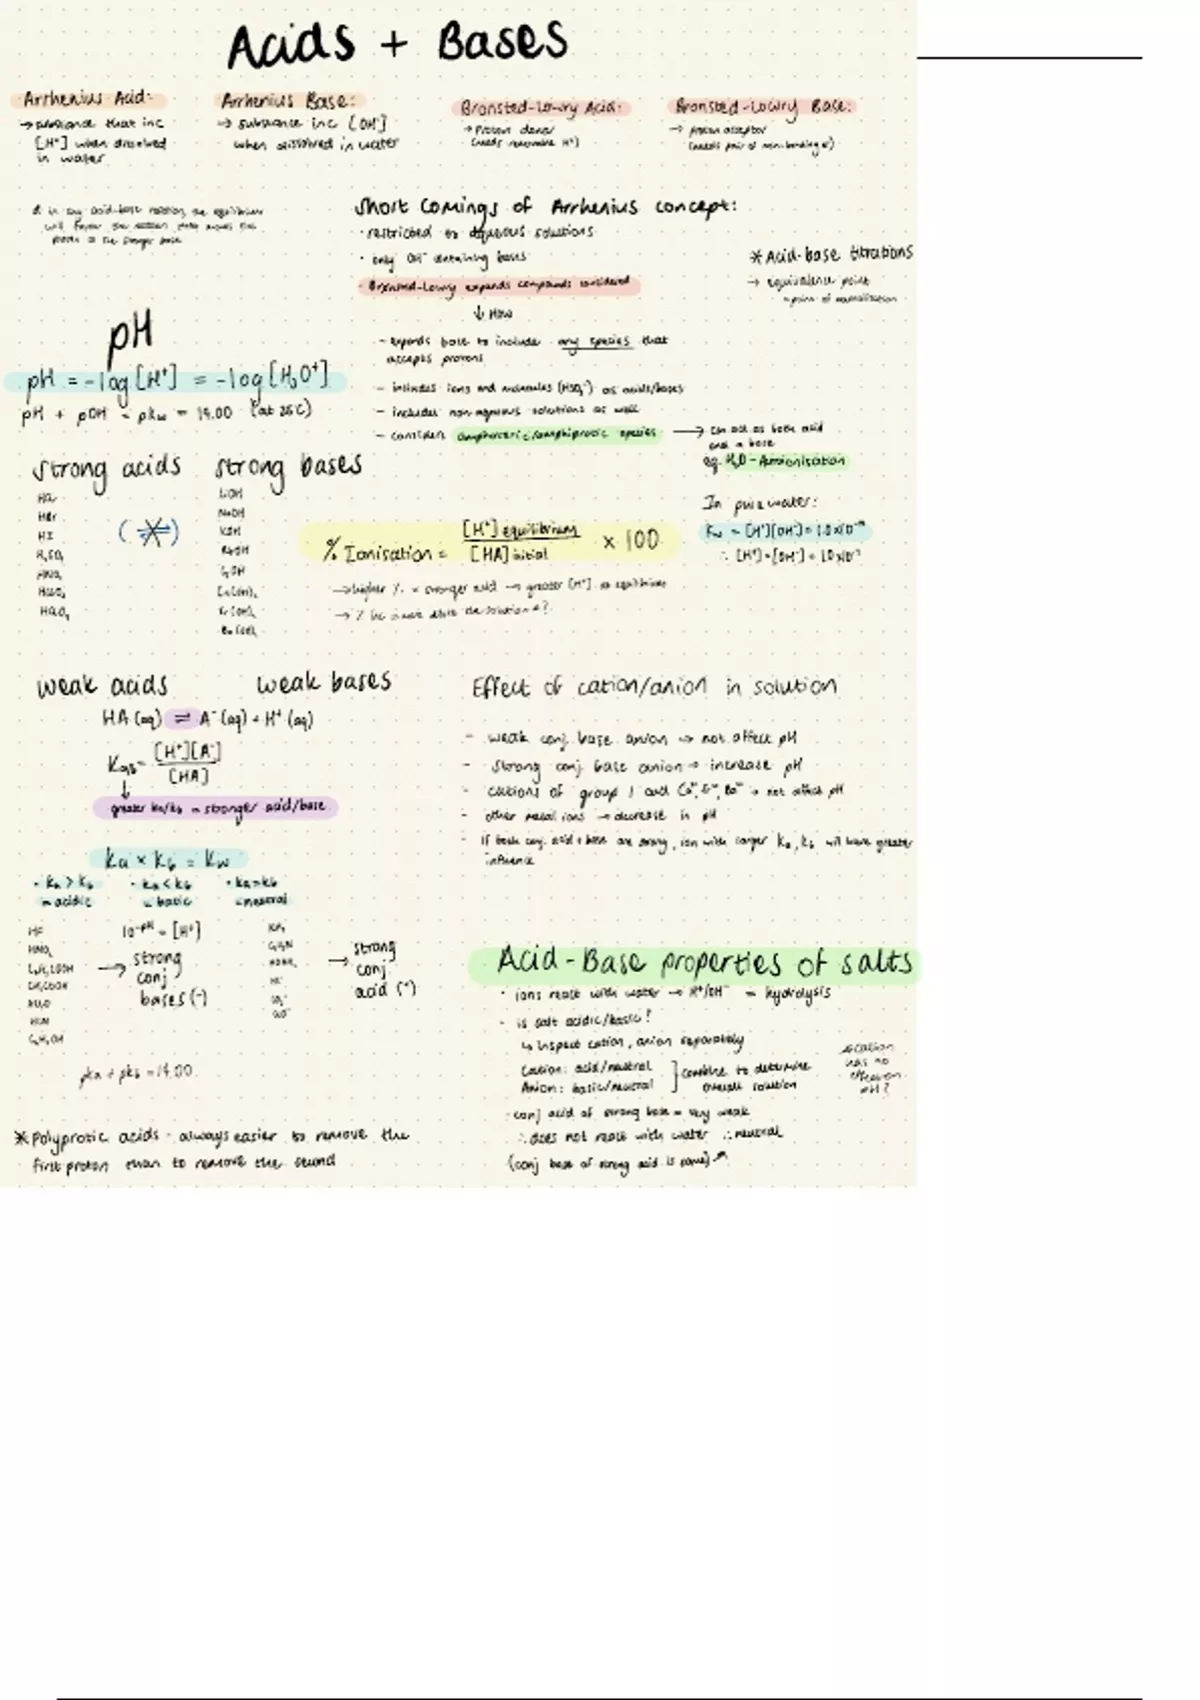 Acids + Bases
Arrhenius Acid:
→ substance that inc
[H⁺] when dissolved
in water
Arrhenius Base:
→ substance inc [OH⁻]
when dissolved in water
Bronsted-Lowry Acid:
→ Proton donor
(needs removable H⁺)
Bronsted-Lowry Base:
→ proton acceptor
(needs pair of non-bonding e⁻)
in any acid-base reaction, the equilibrium
will favor the reaction that moves the
proton to the stronger base
Short Comings of Arrhenius concept:
· restricted to aqueous solutions
· only OH⁻ containing bases
· Bronsted-Lowry expands compounds considered
↓ How
- expands base to include any species that
accepts protons
- includes ions and molecules (HSO₄⁻) as acids/bases
- includes non-aqueous solutions as well
- considers amphoteric/amphiprotic species → can act as both acid
and a base
eg. H₂O - Autoionisation
* Acid-base titrations
→ equivalence point
= point of neutralisation
pH
pH = -log[H⁺] = -log[H₃O⁺]
pH + pOH = pKw = 14.00 (at 25°C)
strong acids
HBr
HI
H₂SO₄
strong bases
LiOH
NaOH
KOH
RbOH
% Ionisation = [H⁺] equilibrium / [HA] initial × 100
→ higher % = stronger acid → greater [H⁺] at equilibrium
In pure water:
Kw = [H⁺][OH⁻] = 1.0×10⁻¹⁴
∴ [H⁺] = [OH⁻] = 1.0×10⁻⁷
weak acids
weak bases
HA (aq) ⇌ A⁻ (aq) + H⁺ (aq)
[H⁺][A⁻]
[HA]
greater ka/kb = stronger acid/base
Ka × Kb = Kw
· Ka > Kb
= acidic
· Ka < Kb
= basic
· Ka = Kb
= neutral
HF
10⁻ᵖᴴ = [H⁺]
→ strong
conj
bases (-)
→ strong
conj
acid (+)
pka + pkb = 14.00
* Polyprotic acids - always easier to remove the
first proton than to remove the second
Effect of cation/anion in solution
- weak conj. base anion → not affect pH
- strong conj. base anion → increase pH
- cations of group 1 and Ca²⁺, Sr²⁺, Ba²⁺ → not affect pH
- other metal ions → decrease in pH
- If both conj. acid + base are strong, ion with larger Ka, Kb will have greater
influence
Acid-Base properties of salts
· ions react with water → H⁺/OH⁻ = hydrolysis
- is salt acidic/basic?
↳ inspect cation, anion separately
Cation: acid/neutral
Anion: basic/neutral
} combine to determine
overall solution
cation
has no
effect on
pH?
· conj acid of strong base = very weak
∴ does not react with water ∴ neutral
(conj base of strong acid is same)